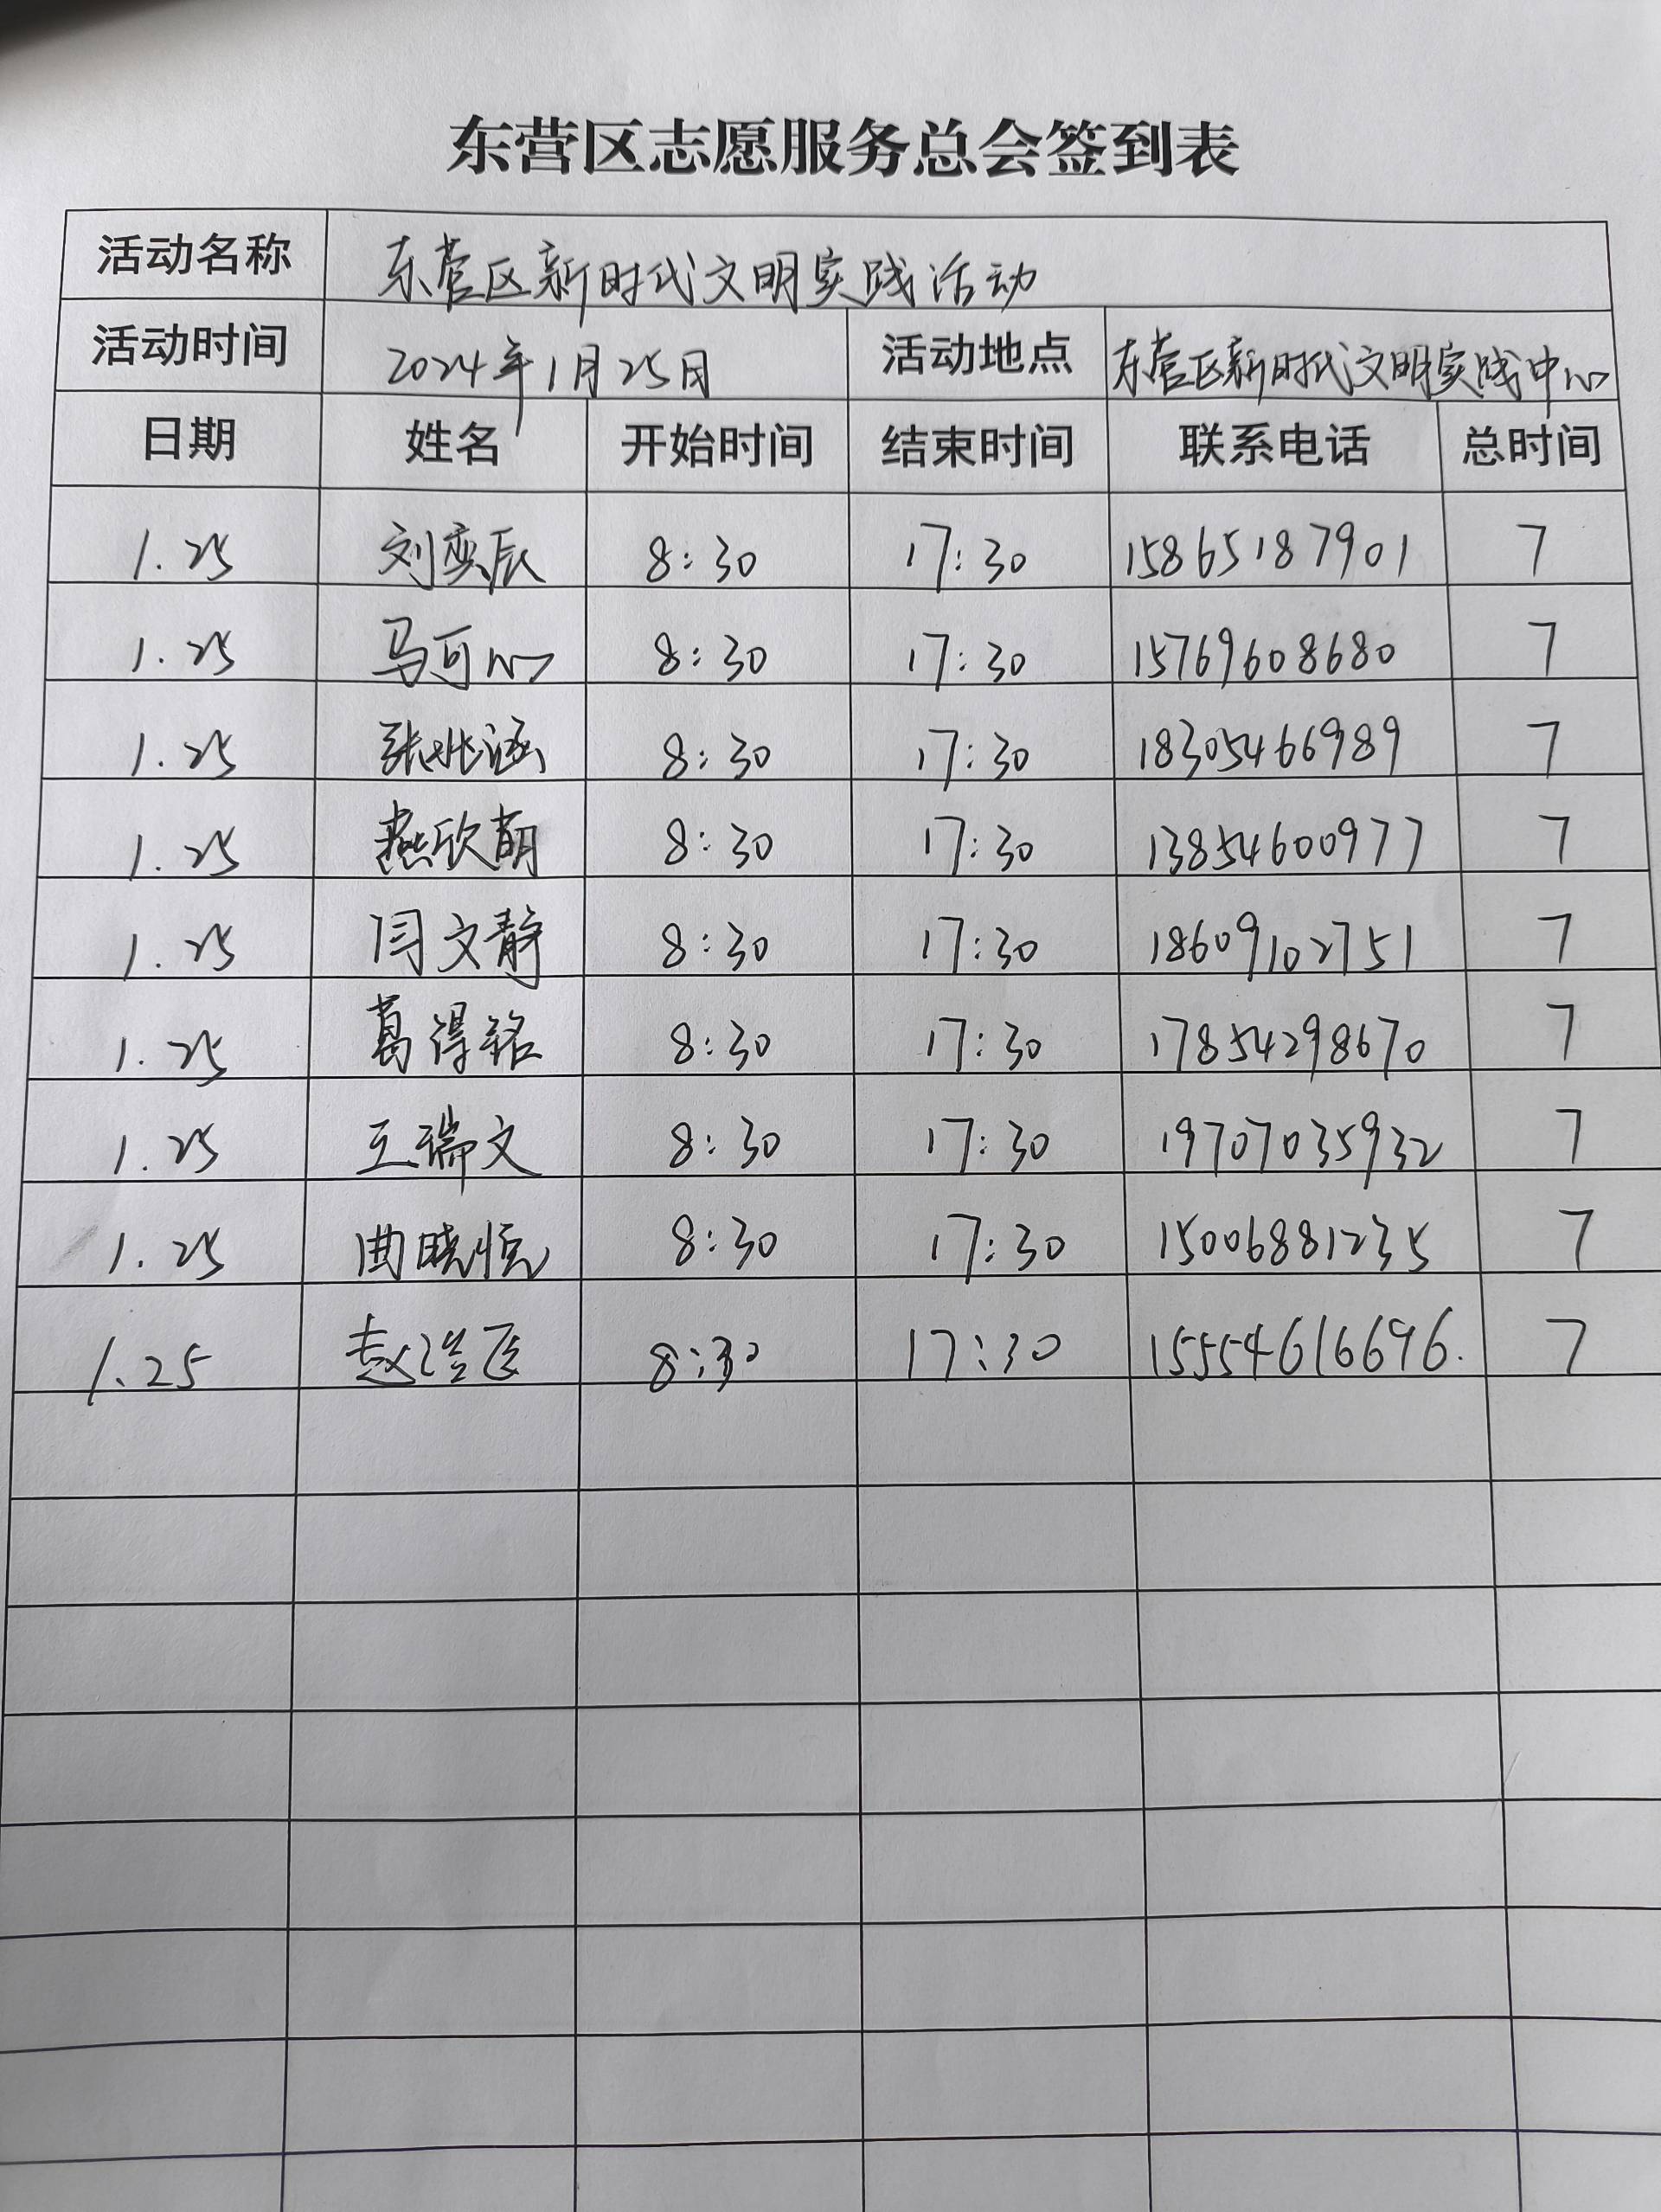 东营区志愿服务总会签到表
活动名称 东营区新时代文明实践活动
活动时间 2024年1月25日 活动地点 东营区新时代文明实践中心
日期 姓名 开始时间 结束时间 联系电话 总时间
1.25 刘奕辰 8:30 17:30 15865187901 7
1.25 马可心 8:30 17:30 15769608680 7
1.25 张兆涵 8:30 17:30 18305466989 7
1.25 燕欣萌 8:30 17:30 13854600977 7
1.25 闫文静 8:30 17:30 18609102751 7
1.25 葛得铭 8:30 17:30 17854298670 7
1.25 王瑞文 8:30 17:30 19707035932 7
1.25 曲晓恒 8:30 17:30 15006881235 7
1.25 赵 8:30 17:30 15554616696. 7